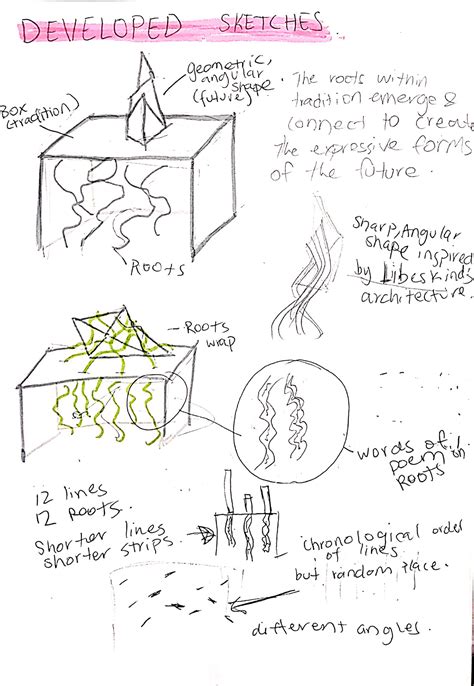 DEVELOPED SKETCHES
geometric,
angular
shape
(future)
Box
(tradition)
The roots within
tradition emerge &
connect to create
the expressive forms
of the future.
ROOTS
Sharp, Angular
shape inspired
by Libeskind's
architecture.
Roots
wrap
words of
poem on
ROOTS
12 lines
12 ROOTS.
Shorter lines
shorter strips.
Chronological order
of lines.
but random place.
different angles.